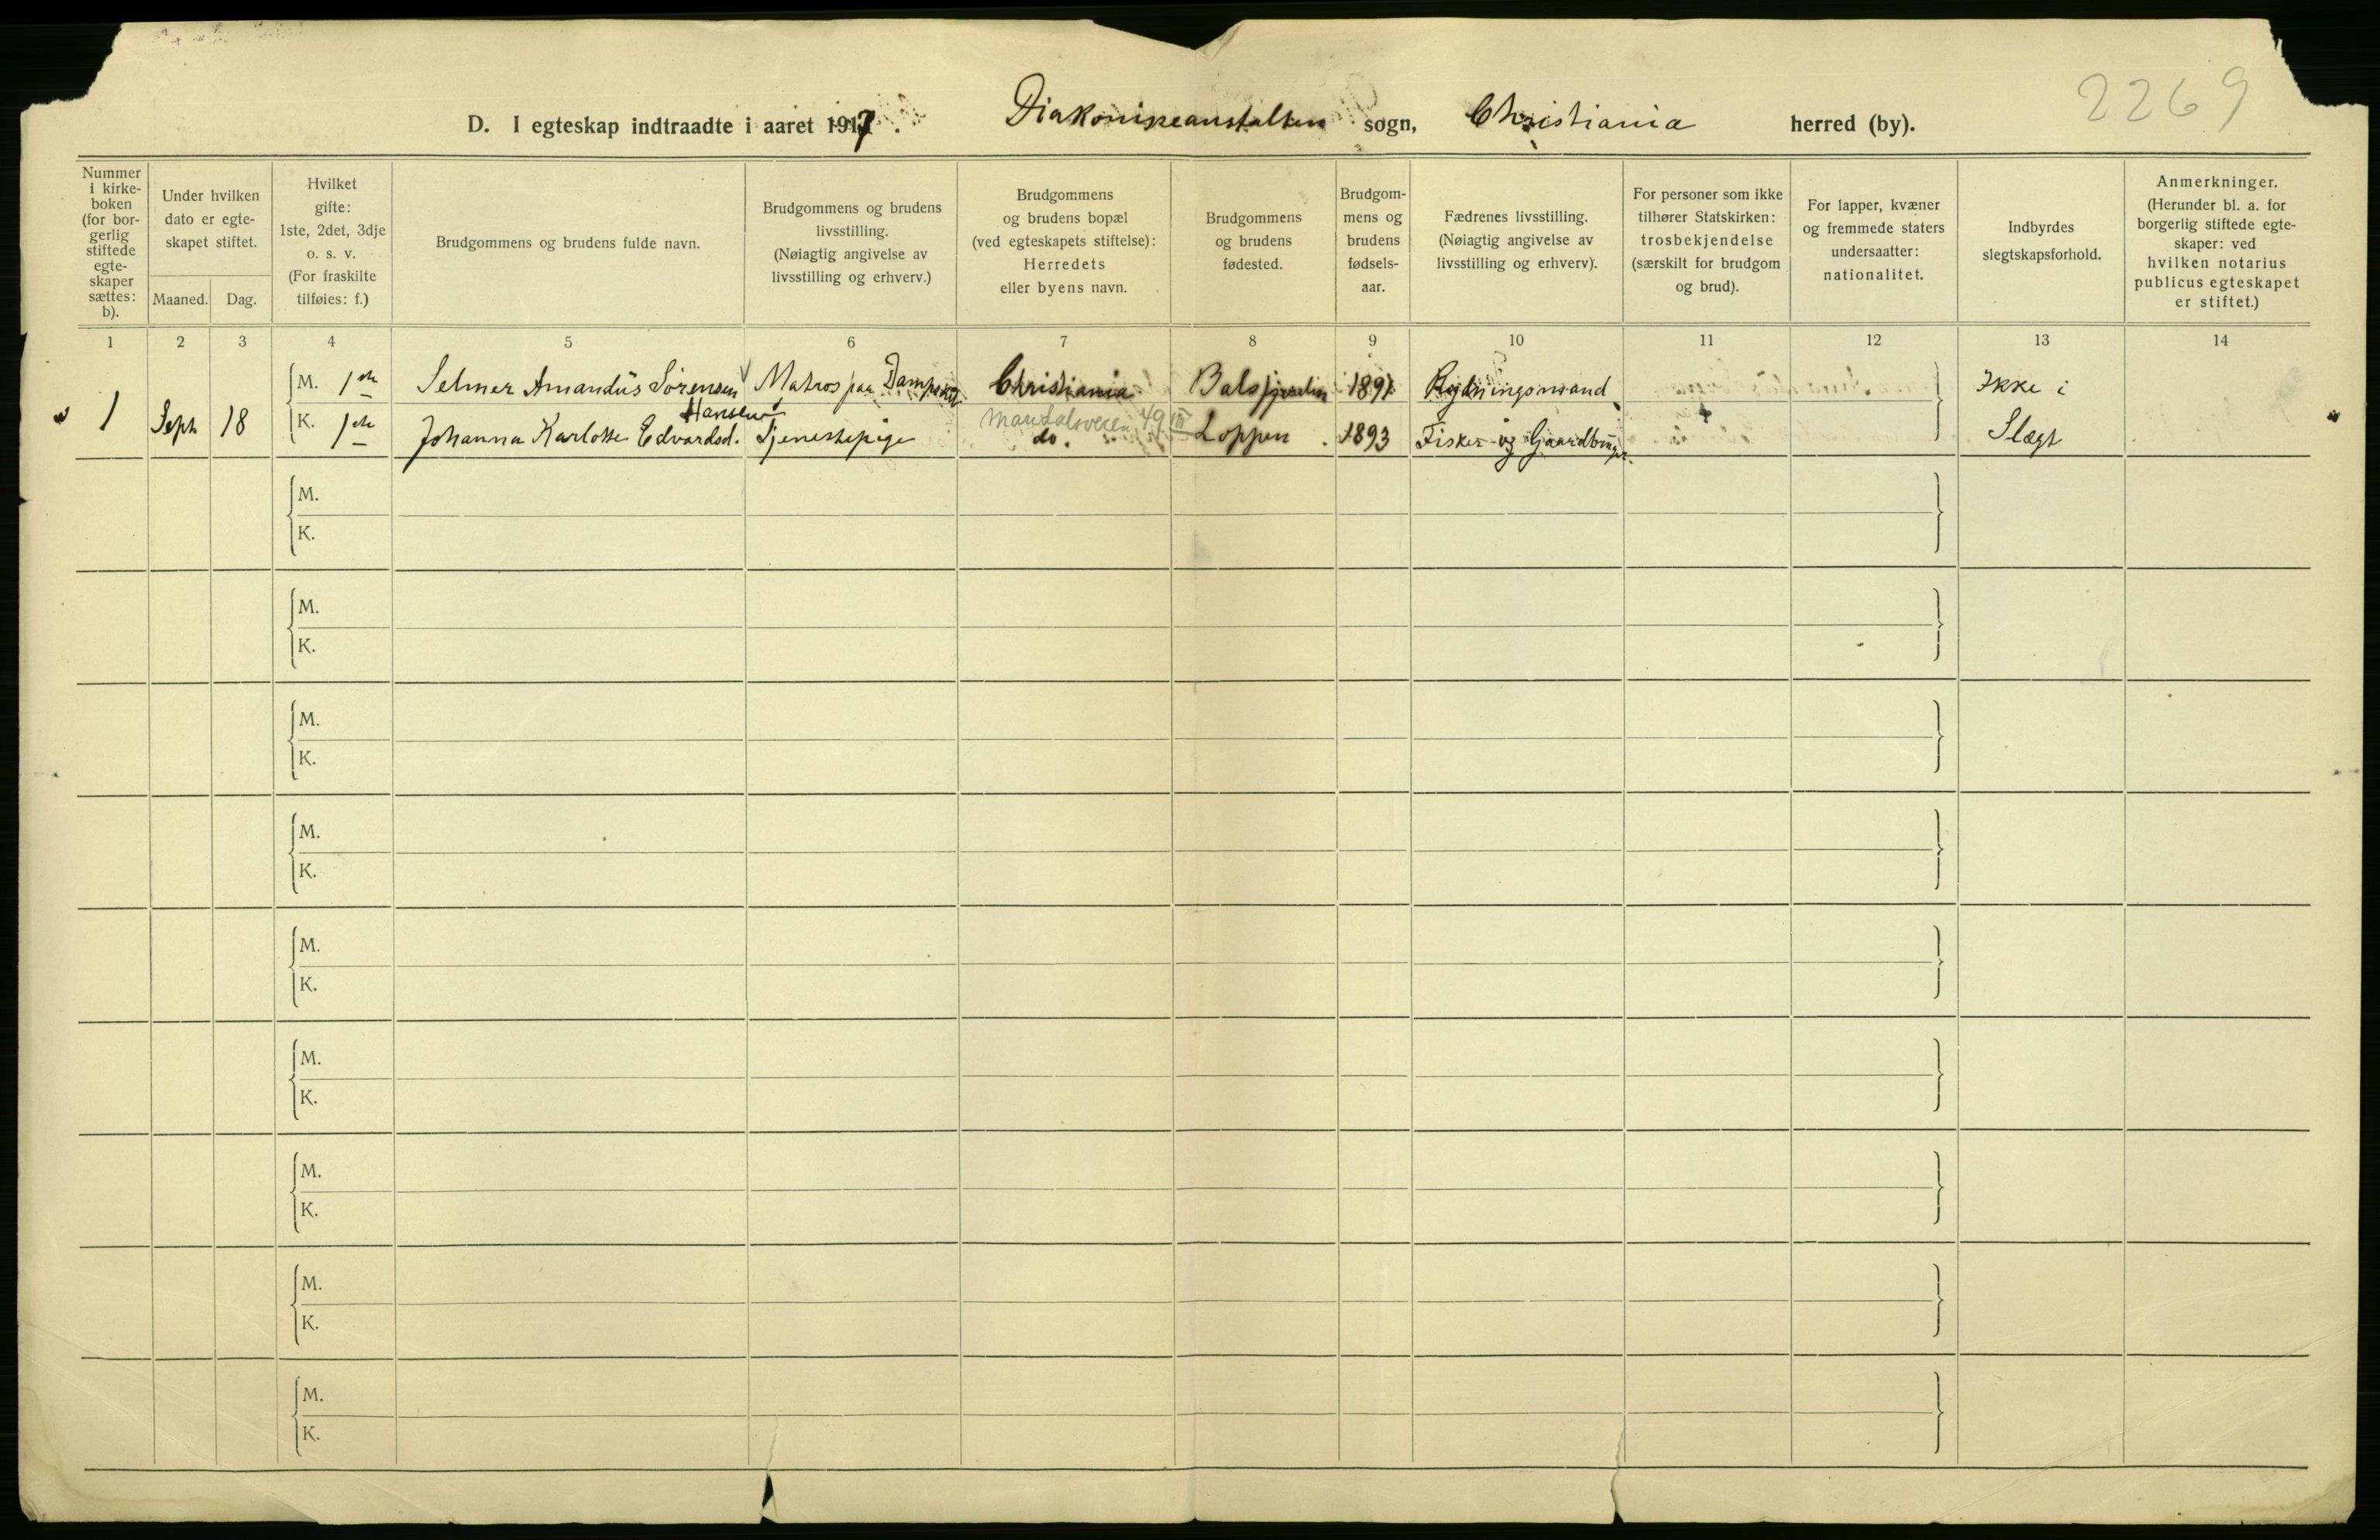 2269
D. I egteskap indtraadte i aaret 1917. Diakonisseanstalten sogn, Christiania herred (by).
Nummer i kirke-boken (for bor-gerlig stiftede egte-skaper sættes: b).
Under hvilken dato er egte-skapet stiftet.
Maaned. Dag.
Hvilket gifte: 1ste, 2det, 3dje o. s. v. (For fraskilte tilføies: f.)
Brudgommens og brudens fulde navn.
Brudgommens og brudens livsstilling. (Nøiagtig angivelse av livsstilling og erhverv.)
Brudgommens og brudens bopæl (ved egteskapets stiftelse): Herredets eller byens navn.
Brudgommens og brudens fødested.
Brudgom-mens og brudens fødsels-aar.
Fædrenes livsstilling. (Nøiagtig angivelse av livsstilling og erhverv).
For personer som ikke tilhører Statskirken: trosbekjendelse (særskilt for brudgom og brud).
For lapper, kvæner og fremmede staters undersaatter: nationalitet.
Indbyrdes slegtskapsforhold.
Anmerkninger. (Herunder bl. a. for borgerlig stiftede egte-skaper: ved hvilken notarius publicus egteskapet er stiftet.)
1 2 3 4 5 6 7 8 9 10 11 12 13 14
M. 1ste Selmer Amandus Sørensen Matros paa Dampskib Christiania Balsfjorden 1891 Rydningsmand Ikke i
Hansen Maridalsveien 49 III
1 Sept 18 K. 1ste Johanna Karlotte Edvardsd. Tjenestepige do. Loppen 1893 Fisker og Gaardbruger Slægt
M.
K.
M.
K.
M.
K.
M.
K.
M.
K.
M.
K.
M.
K.
M.
K.
M.
K.